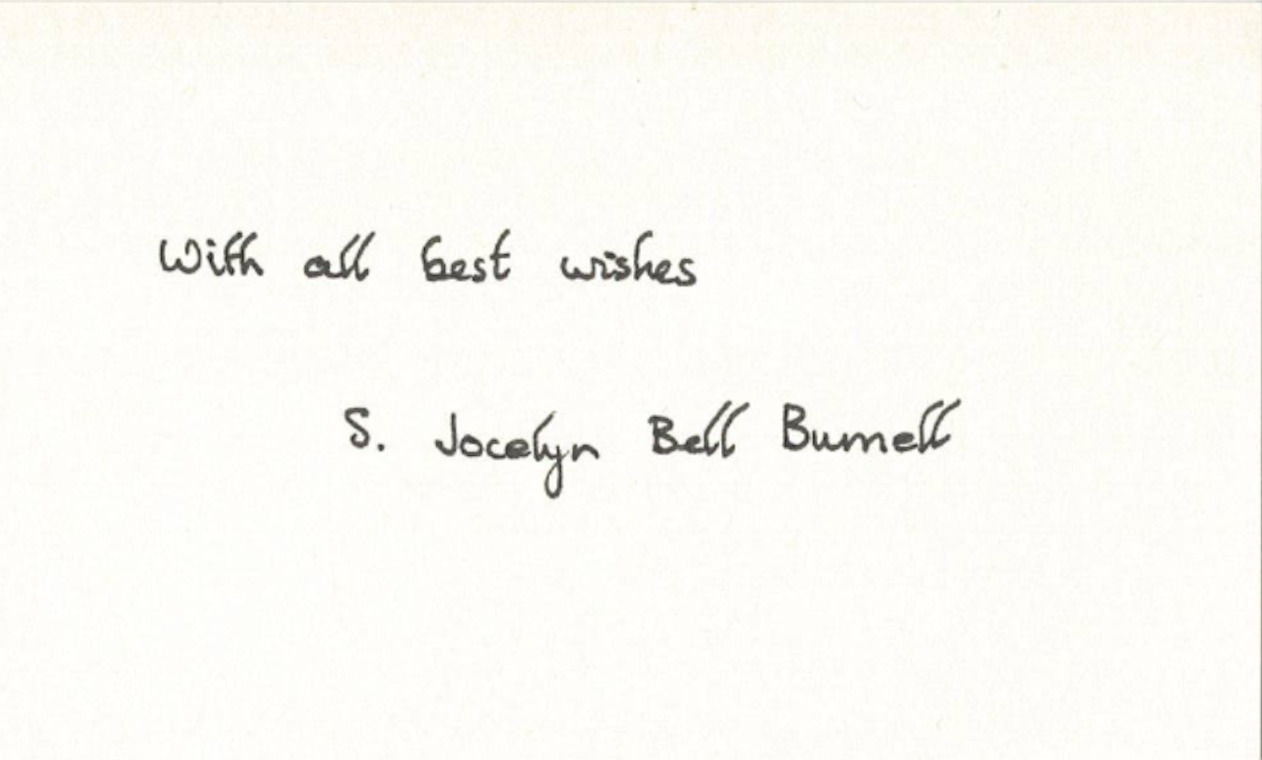 With all best wishes
S. Jocelyn Bell Burnell